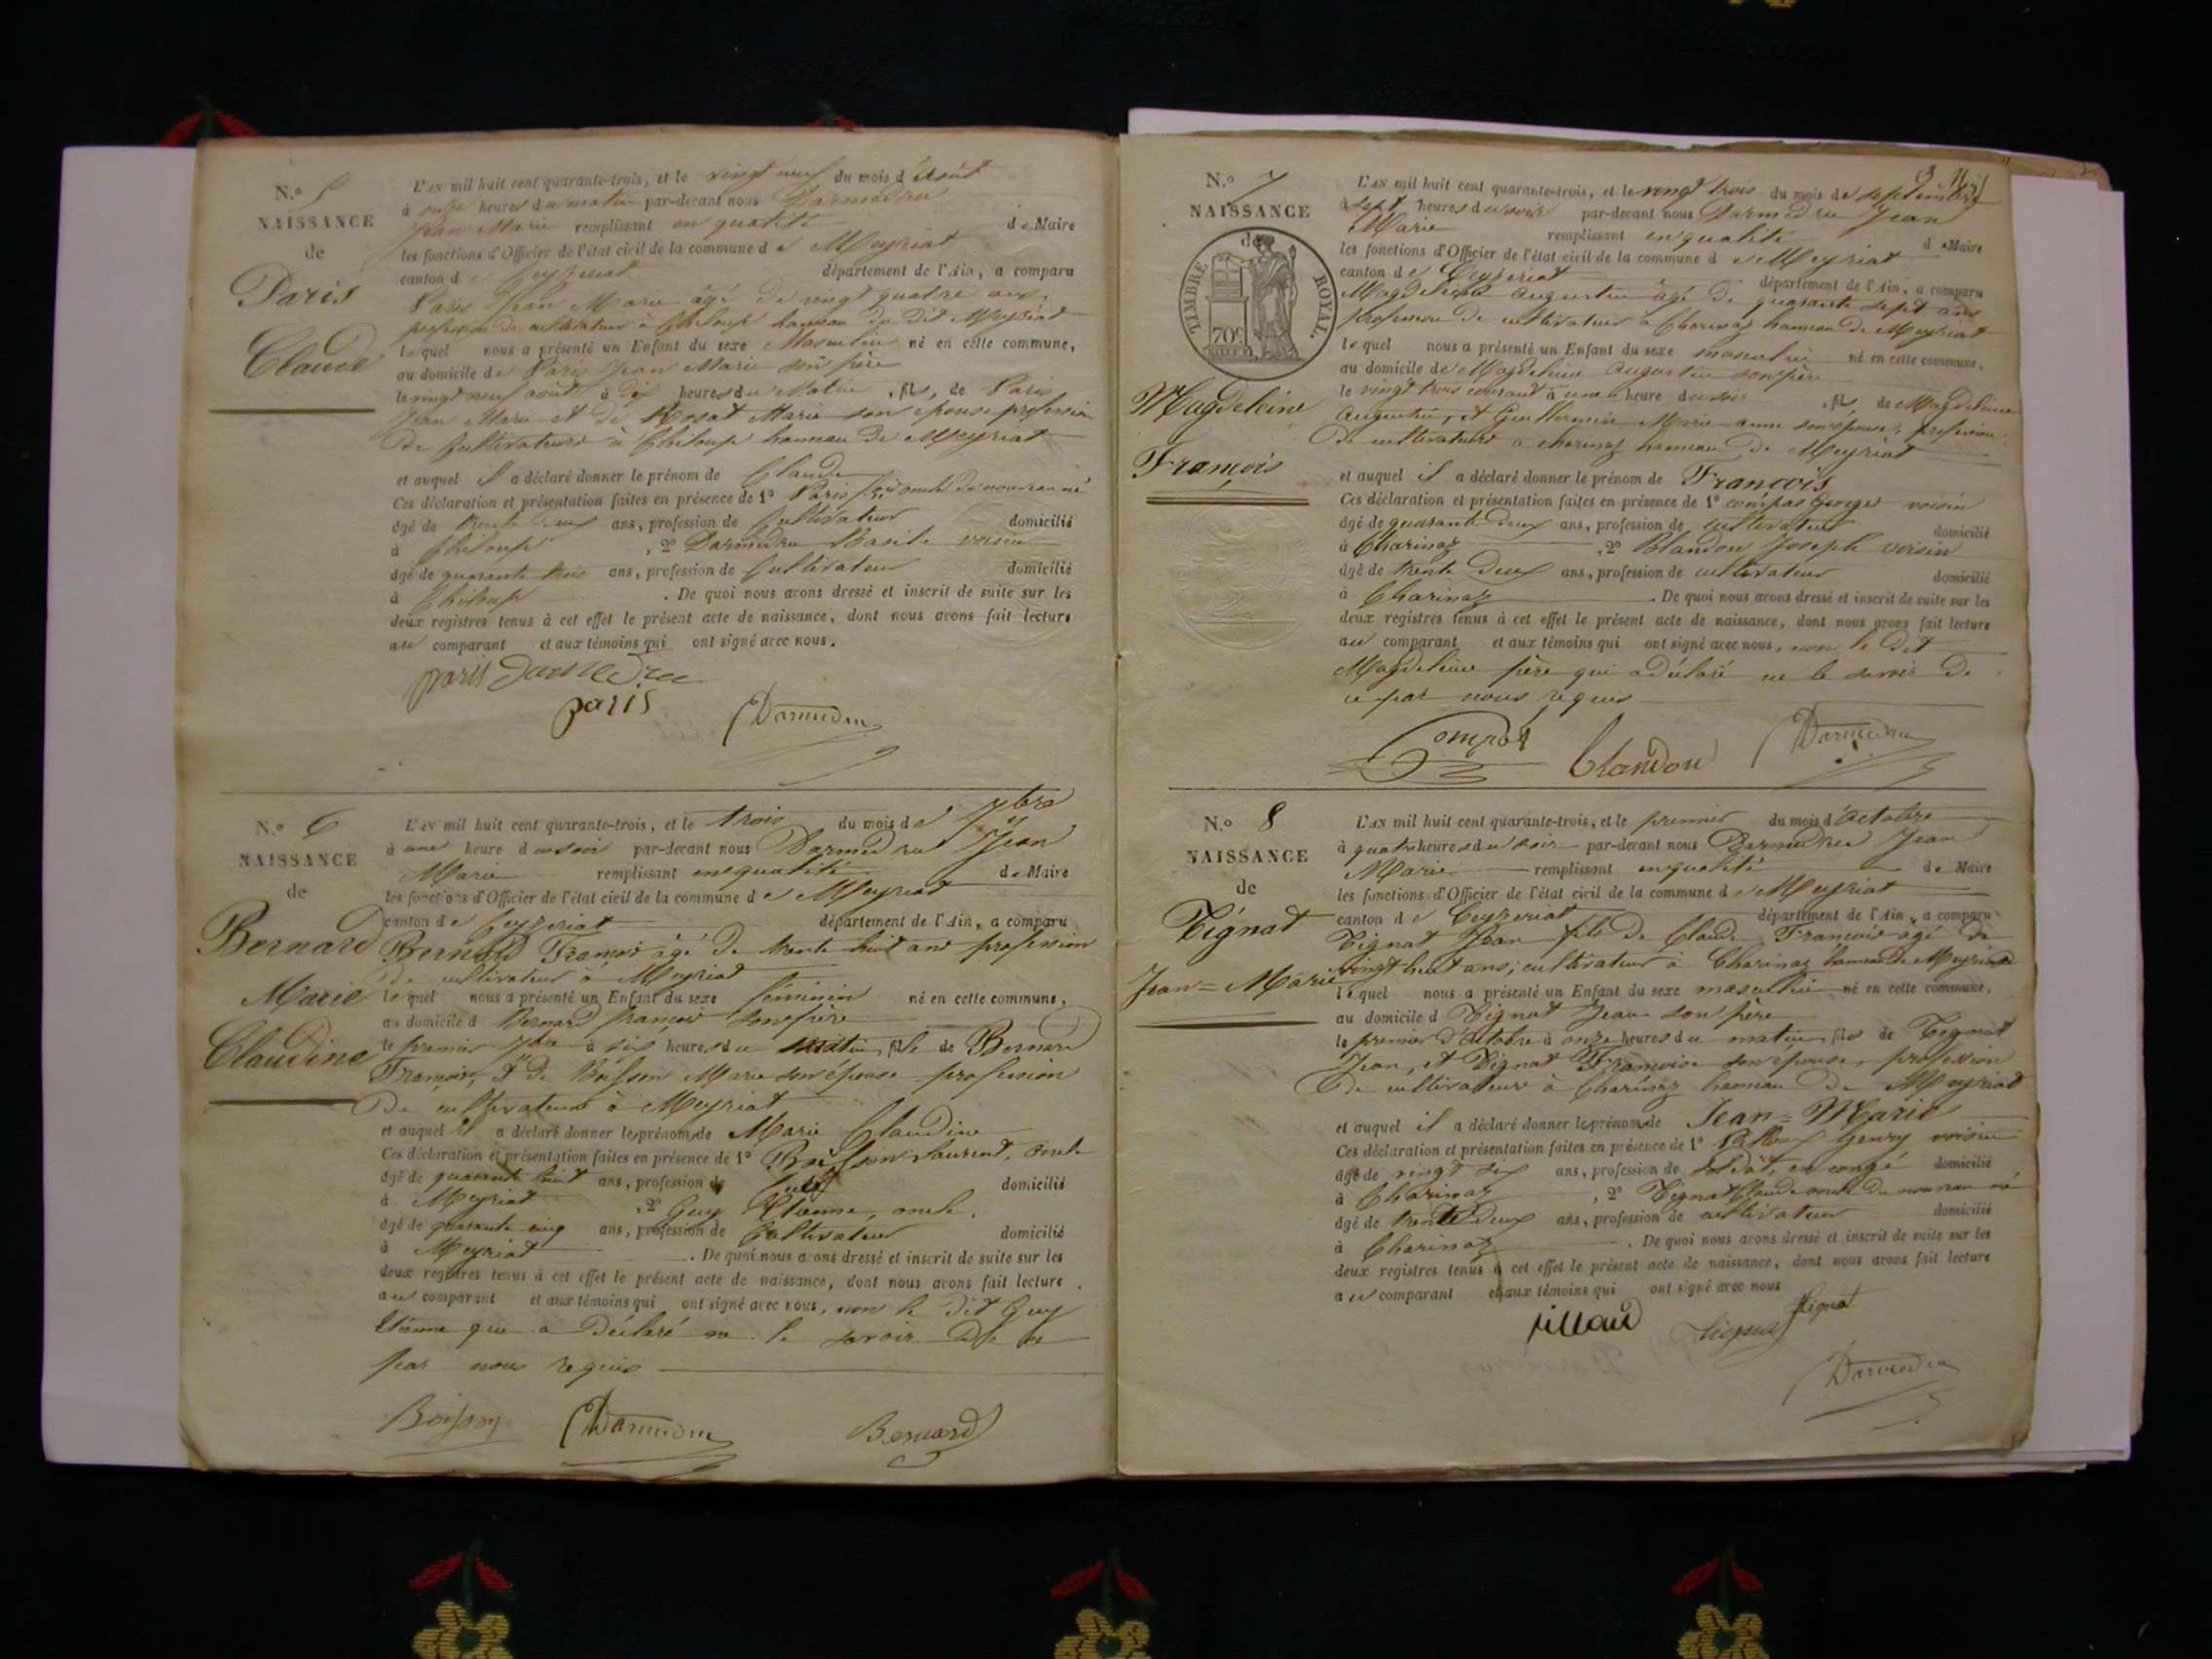 N.o 5
NAISSANCE
de
Paris
Claude
L'AN mil huit cent quarante-trois, et le vingt neuf du mois d'Août
à onze heures du matin par-devant nous Darmedru
Jean Marie remplissant en qualité de Maire
les fonctions d'Officier de l'état civil de la commune de Meyriat
canton de Ceyzeriat département de l'Ain, a comparu
Paris Jean Marie âgé de vingt quatre ans,
profession de cultivateur à Chiloup hameau du dit Meyriat
lequel nous a présenté un Enfant du sexe Masculin né en cette commune,
au domicile de Paris Jean Marie son père
le vingt neuf août à dix heures du Matin, fils, de Paris
Jean Marie et de Rosat Marie son épouse profession
de Cultivateurs à Chiloup hameau de Meyriat
et auquel il a déclaré donner le prénom de Claude
Ces déclaration et présentation faites en présence de 1° Paris oncle du nouveau né
âgé de trente deux ans, profession de Cultivateur domicilié
à Chiloup, 2° Darmedru Basile voisin
âgé de quarante trois ans, profession de Cultivateur domicilié
à Chiloup. De quoi nous avons dressé et inscrit de suite sur les
deux registres tenus à cet effet le présent acte de naissance, dont nous avons fait lecture
au comparant et aux témoins qui ont signé avec nous.
paris Darmedru
paris Darmedru
N.o 6
NAISSANCE
de
Bernard
Marie
Claudine
L'AN mil huit cent quarante-trois, et le trois du mois de 7bre
à une heure du soir par-devant nous Darmedru Jean
Marie remplissant en qualité de Maire
les fonctions d'Officier de l'état civil de la commune de Meyriat
canton de Ceyzeriat département de l'Ain, a comparu
Bernard François âgé de trente huit ans profession
de cultivateur à Meyriat
lequel nous a présenté un Enfant du sexe féminin né en cette commune,
au domicile d Bernard françois son père
le premier 7bre à six heures du matin, fille de Bernard
François, & de Boisson Marie son épouse profession
de cultivateurs à Meyriat
et auquel il a déclaré donner les prénoms de Marie Claudine
Ces déclaration et présentation faites en présence de 1° Boisson Laurent, oncle
âgé de quarante huit ans, profession de domicilié
à Meyriat, 2° Guy Etienne, oncle,
âgé de quarante cinq ans, profession de Cultivateur domicilié
à Meyriat. De quoi nous avons dressé et inscrit de suite sur les
deux registres tenus à cet effet le présent acte de naissance, dont nous avons fait lecture
au comparant et aux témoins qui ont signé avec nous, non le dit Guy
Etienne qui a déclaré ne le savoir de ce
par nous requis
Boisson Darmedru Bernard
N.o 7
NAISSANCE
de
TIMBRE ROYAL
70c
Magdeleine
François
L'AN mil huit cent quarante-trois, et le vingt trois du mois de septembre
à sept heures du soir par-devant nous Darmedru Jean
Marie remplissant en qualité de Maire
les fonctions d'Officier de l'état civil de la commune de Meyriat
canton de Ceyzeriat département de l'Ain, a comparu
Magdeleine augustin âgé de quarante sept ans
profession de cultivateur à Charinaz hameau de Meyriat
lequel nous a présenté un Enfant du sexe masculin né en cette commune,
au domicile de Magdeleine augustin son père
le vingt trois courant à une heure du soir, fils de Magdeleine
augustin, et Guillermin Marie anne son épouse, profession
de cultivateurs à charinaz hameau de Meyriat
et auquel il a déclaré donner le prénom de François
Ces déclaration et présentation faites en présence de 1° compas George voisin
âgé de quarante deux ans, profession de cultivateur domicilié
à Charinaz, 2° Blandon Joseph voisin
âgé de trente deux ans, profession de cultivateur domicilié
à Charinaz. De quoi nous avons dressé et inscrit de suite sur les
deux registres tenus à cet effet le présent acte de naissance, dont nous avons fait lecture
au comparant et aux témoins qui ont signé avec nous, non le dit
Magdeleine père qui a déclaré ne le savoir de
ce par nous requis
Compas blandon Darmedru
N.o 8
NAISSANCE
de
Tignat
Jean=Marie
L'AN mil huit cent quarante-trois, et le premier du mois d'octobre
à quatre heures du soir par-devant nous Darmedru Jean
Marie remplissant en qualité de Maire
les fonctions d'Officier de l'état civil de la commune de Meyriat
canton de Ceyzeriat département de l'Ain, a comparu
Tignat Jean fils de Claude François âgé de
vingt huit ans; cultivateur à Charinaz hameau de Meyriat
lequel nous a présenté un Enfant du sexe masculin né en cette commune,
au domicile d Tignat Jean son père
le premier d'octobre à onze heures du matin, fils de Tignat
Jean, et Tignat Françoise son épouse, profession
de cultivateurs à Charinaz hameau de Meyriat
et auquel il a déclaré donner les prénoms de Jean=Marie
Ces déclaration et présentation faites en présence de 1° voisin
âgé de vingt six ans, profession de soldat, en congé domicilié
à Charinaz, 2° Tignat Claude oncle du nouveau né
âgé de trente deux ans, profession de cultivateur domicilié
à Charinaz. De quoi nous avons dressé et inscrit de suite sur les
deux registres tenus à cet effet le présent acte de naissance, dont nous avons fait lecture
au comparant et aux témoins qui ont signé avec nous
Tignat
Darmedru